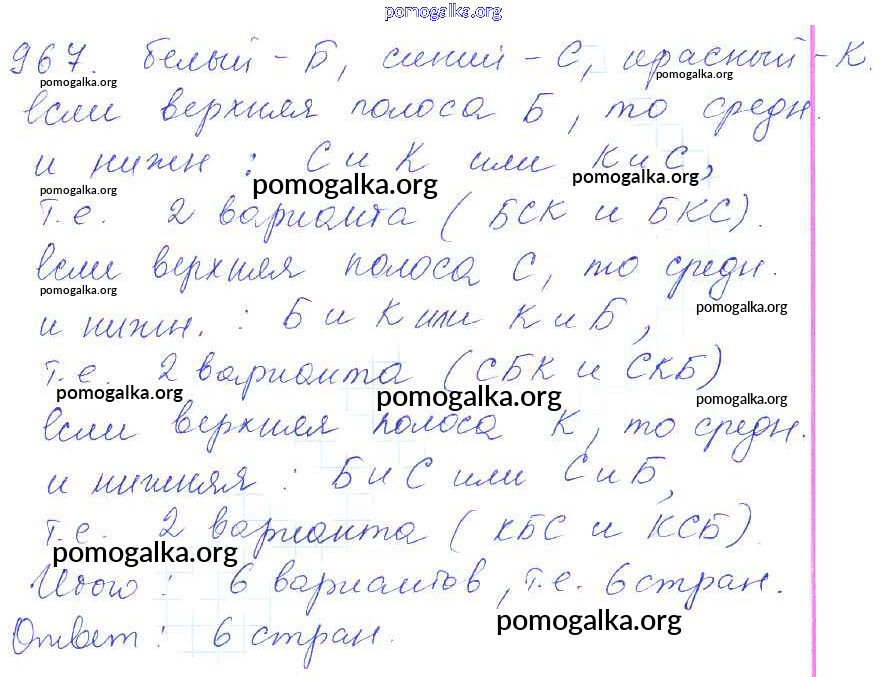 pomogalka.org
967. белый - Б, синий - С, красный - К.
pomogalka.org pomogalka.org
если верхняя полоса Б, то средн.
и нижн : С и К или К и С,
pomogalka.org pomogalka.org pomogalka.org
т.е. 2 варианта (БСК и БКС).
если верхняя полоса С, то средн.
pomogalka.org pomogalka.org
и нижн. : Б и К или К и Б,
т.е. 2 варианта (СБК и СКБ)
pomogalka.org pomogalka.org pomogalka.org
если верхняя полоса К, то средн.
и нижняя : Б и С или С и Б,
т.е. 2 варианта (КБС и КСБ).
pomogalka.org
Итого : 6 вариантов, т.е. 6 стран.
Ответ : 6 стран.
pomogalka.org